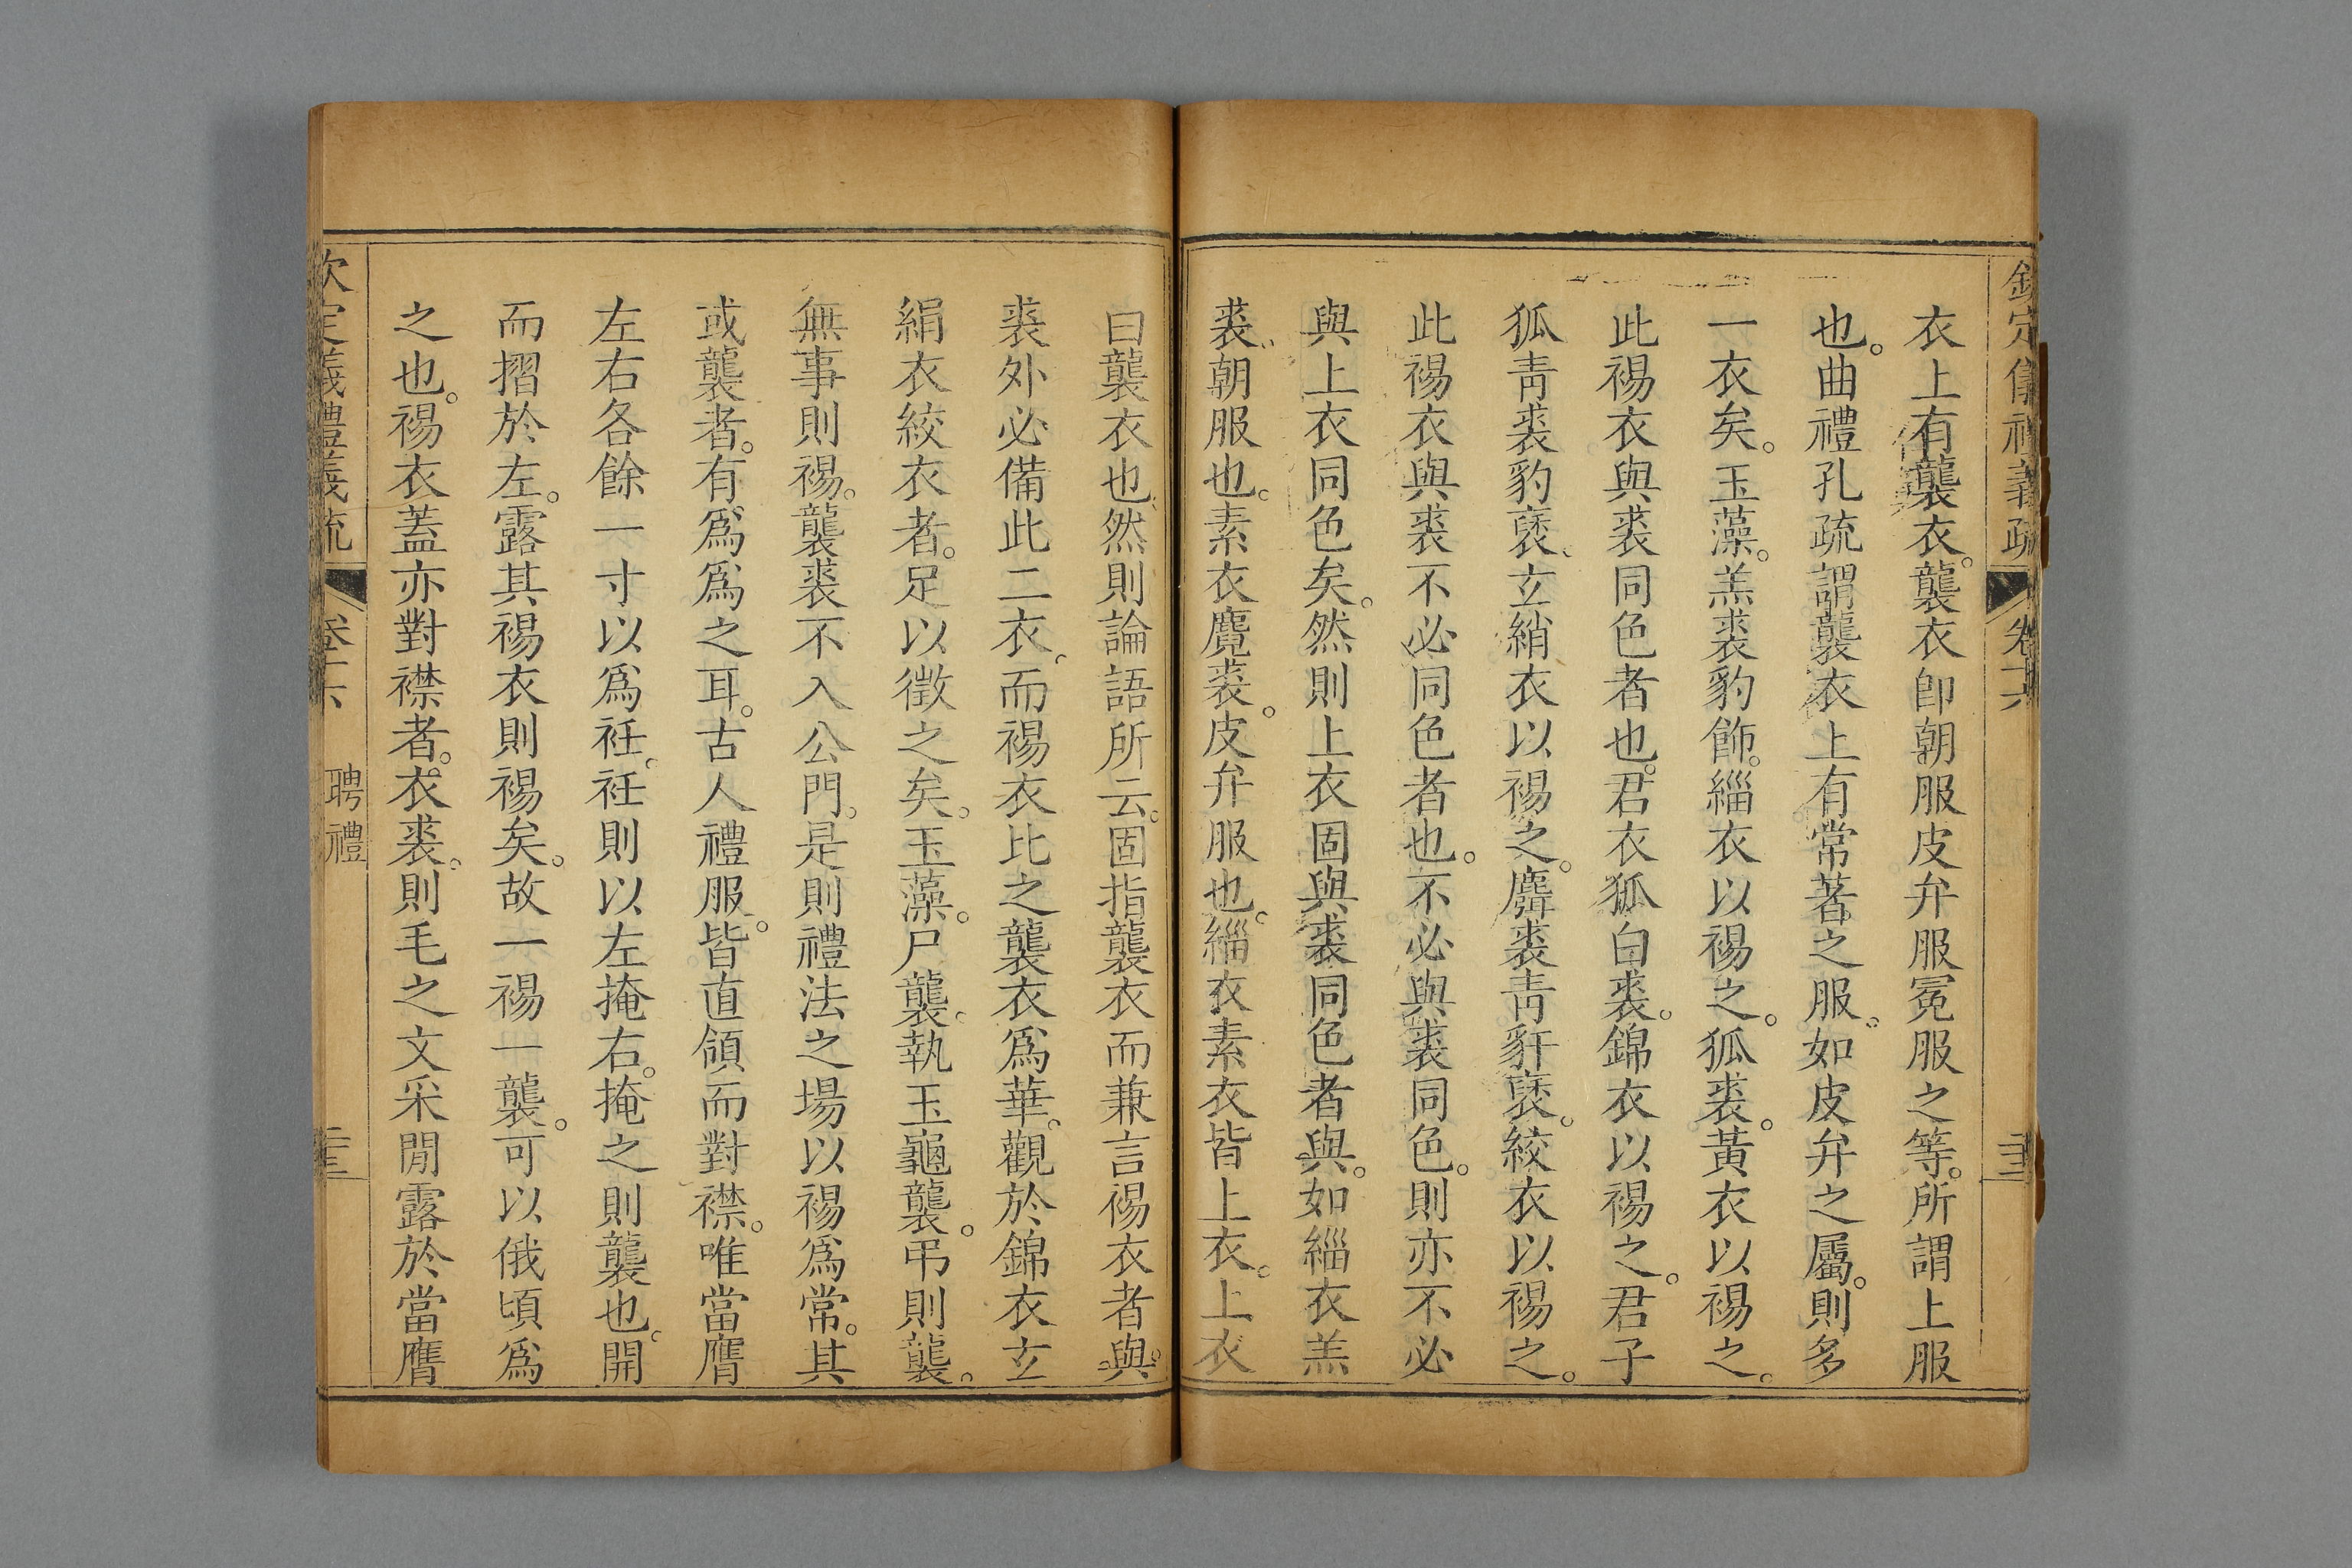 欽定儀禮義疏 卷十六
衣上有襲衣。襲衣卽朝服皮弁服冕服之等。所謂上服
也。曲禮孔疏謂襲衣上有常著之服。如皮弁之屬。則多
一衣矣。玉藻。羔裘豹飾。緇衣以裼之。狐裘。黃衣以裼之。
此裼衣與裘同色者也。君衣狐白裘。錦衣以裼之。君子
狐靑裘豹褎、玄綃衣以裼之。麛裘靑豻褎。絞衣以裼之。
此裼衣與裘不必同色者也。不必與裘同色。則亦不必
與上衣同色矣。然則上衣固與裘同色者與。如緇衣羔
裘、朝服也。素衣麑裘。皮弁服也。緇衣素衣皆上衣。上衣
曰襲衣也、然則論語所云。固指襲衣而兼言裼衣者與。
裘外必備此二衣。而裼衣比之襲衣爲華。觀於錦衣玄
絹衣絞衣者。足以徵之矣。玉藻。尸襲。執玉龜襲。弔則襲。
無事則裼。襲裘不入公門。是則禮法之場以裼爲常。其
或襲者。有爲爲之耳。古人禮服。皆直領而對襟。唯當膺
左右各餘一寸以爲衽。衽則以左掩右。掩之則襲也。開
而摺於左。露其裼衣則裼矣。故一裼一襲。可以俄頃爲
之也。裼衣蓋亦對襟者。衣裘。則毛之文采閒露於當膺
聘禮